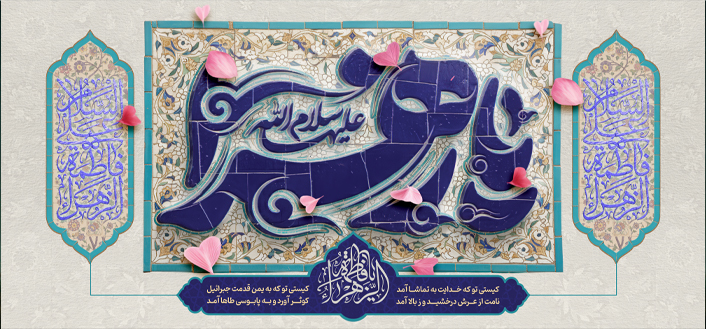 یا زهرا
سلام الله علیها
السلام
علیک یا
فاطمة
الزهراء
السلام
علیک یا
فاطمة
الزهراء
یا فاطمة الزهراء
کیستی تو که خدایت به تماشا آمد
نامت از عرش درخشید و ز بالا آمد
کیستی تو که به یمن قدمت جبرائیل
کوثر آورد و به پابوسی طاها آمد